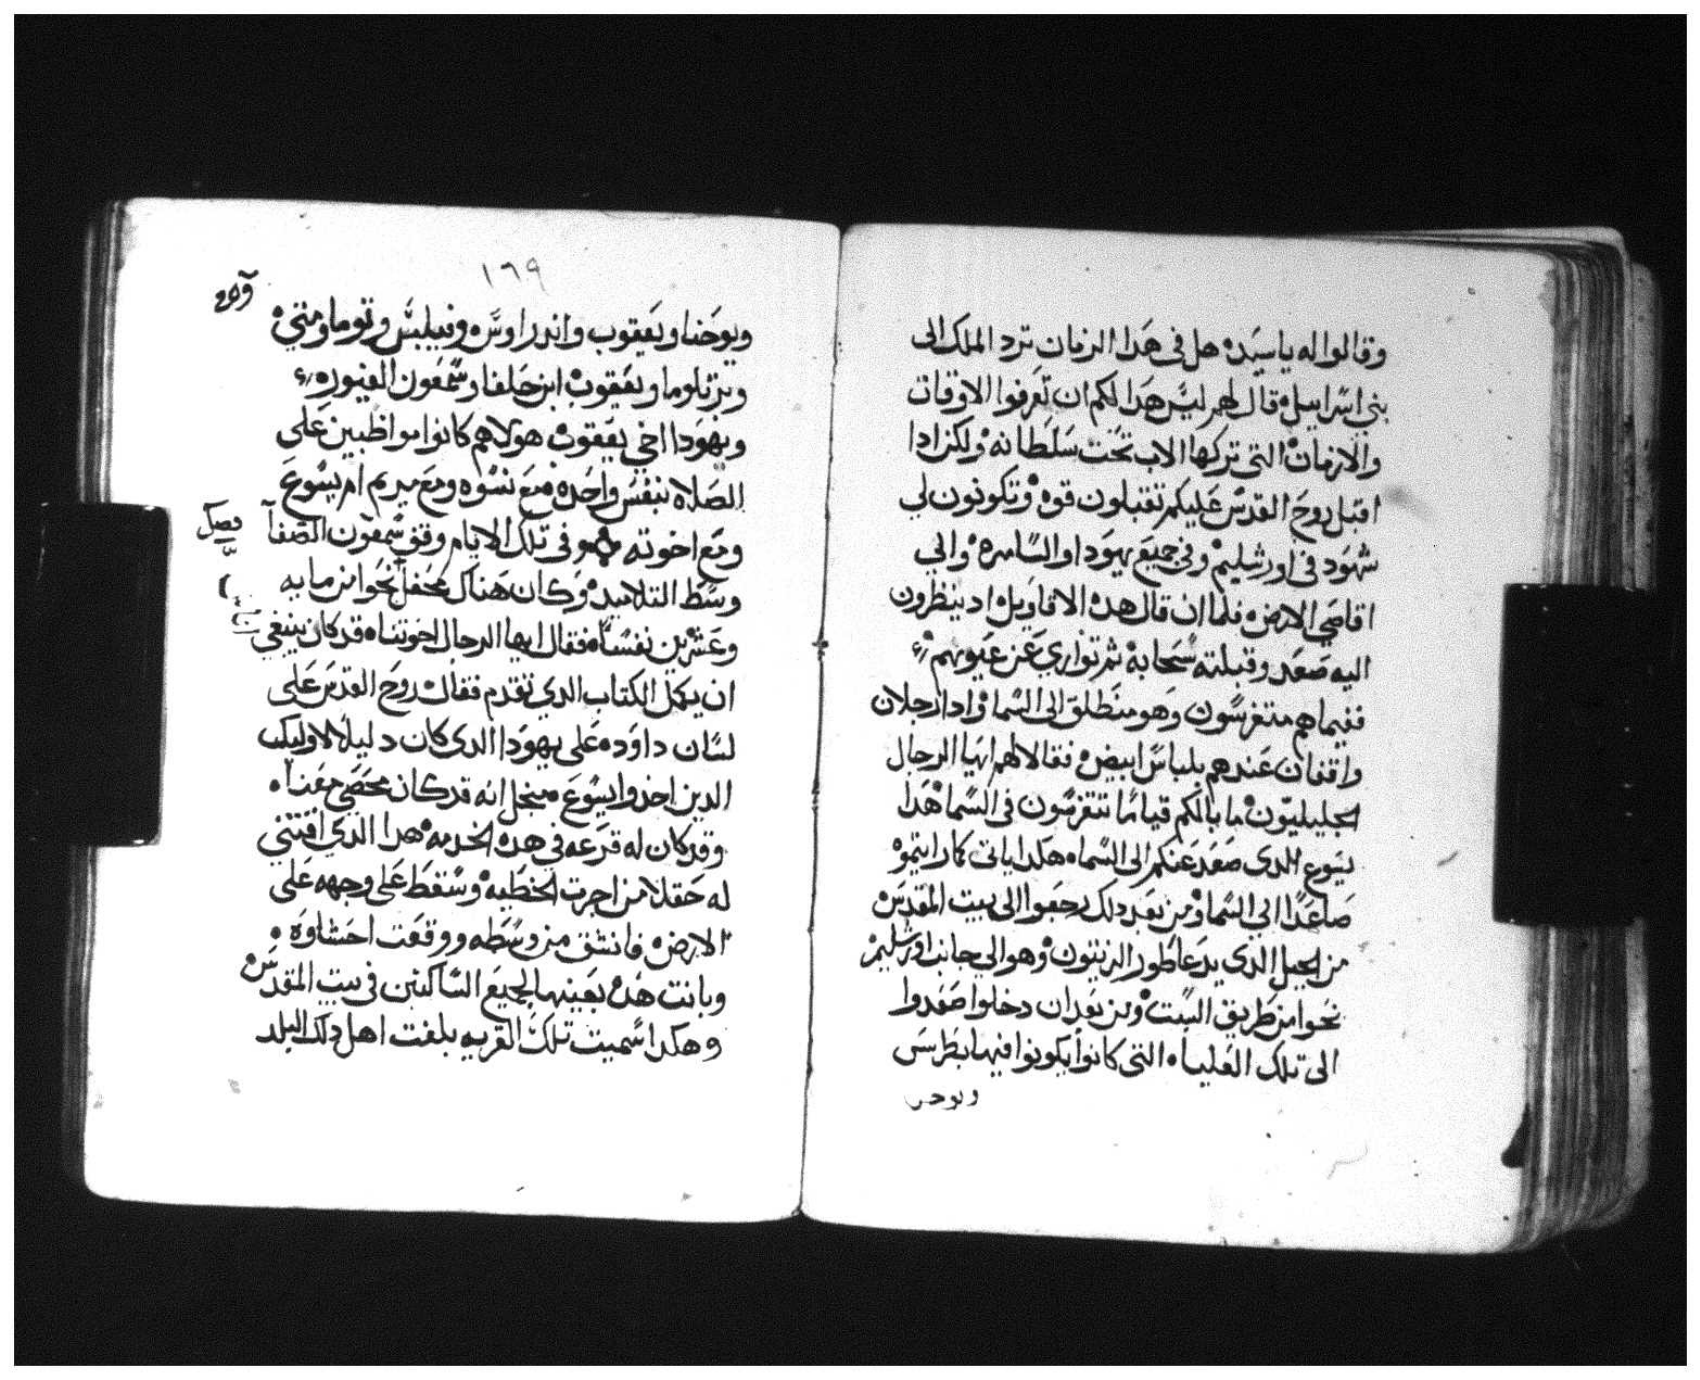 وقالوا له يا سيده هل في هدا الزمان ترد الملك الى
بني اسراييل قال لهم ليس هدا لكم ان تعرفوا الاوقات
والازمان التي تركها الاب تحت سلطانه ولكن ادا
اقبل روح القدس عليكم تقبلون قوه وتكونون لي
شهود في اورشليم وفي جميع يهودا والسامره والي
اقاصي الارض فلما ان قال هده الاقاويل اد ينظرون
اليه صعد وقبلته سحابه ثم تواري عن عيونهم
فبينما هم متفرسون وهو منطلق الى السما وادا رجلان
واقفان عندهم بلباس ابيض فقالا لهم ايها الرجال
الجليليون ما بالكم قياما تتفرسون في السما هدا
يسوع الدى صعد عنكم الى السماء هكدا ياتى كما رايتموه
صاعدا الي السما ومن بعد دلك رجعوا الى بيت المقدس
من الجبل الدى يدعا طور الزيتون وهو الي جانب اورشليم
نحوا من طريق السبت ومن بعد ان دخلوا صعدوا
الى تلك العلياه التى كانوا يكونوا فيها بطرس
ويوحنا
١٦٩
ويوحنا ويعقوب واندراوس وفيلبس وتوما ومتي
وبرتلوما ويعقوب ابن حلفا وشمعون الغيور
ويهودا اخي يعقوب هولاهم كانوا مواظبين على
الصلاه بنفس واحده مع نسوه ومع مريم ام يسوع
ومع اخوته وفي تلك الايام وقف شمعون الصفا
فصل
وسط التلاميد وكان هناك محفل نحوا من مايه
وعشرين نفسا فقال ايها الرجال اخوتنا قد كان ينبغي
ان يكمل الكتاب الدي تقدم فقال روح القدس على
لسان داود على يهودا الدى كان دليلا لاوليك
الدين اخدوا يسوع من اجل انه قد كان محصي معنا
وقد كان له قرعه في هده الخدمه هدا الدي اقتنى
له حقلا من اجرت الخطيه وسقط على وجهه على
الارض فانشق من وسطه ووقعت احشاوه
وبانت هده بعينها لجميع الساكنين في بيت المقدس
وهكدا سميت تلك القريه بلغت اهل دلك البلد